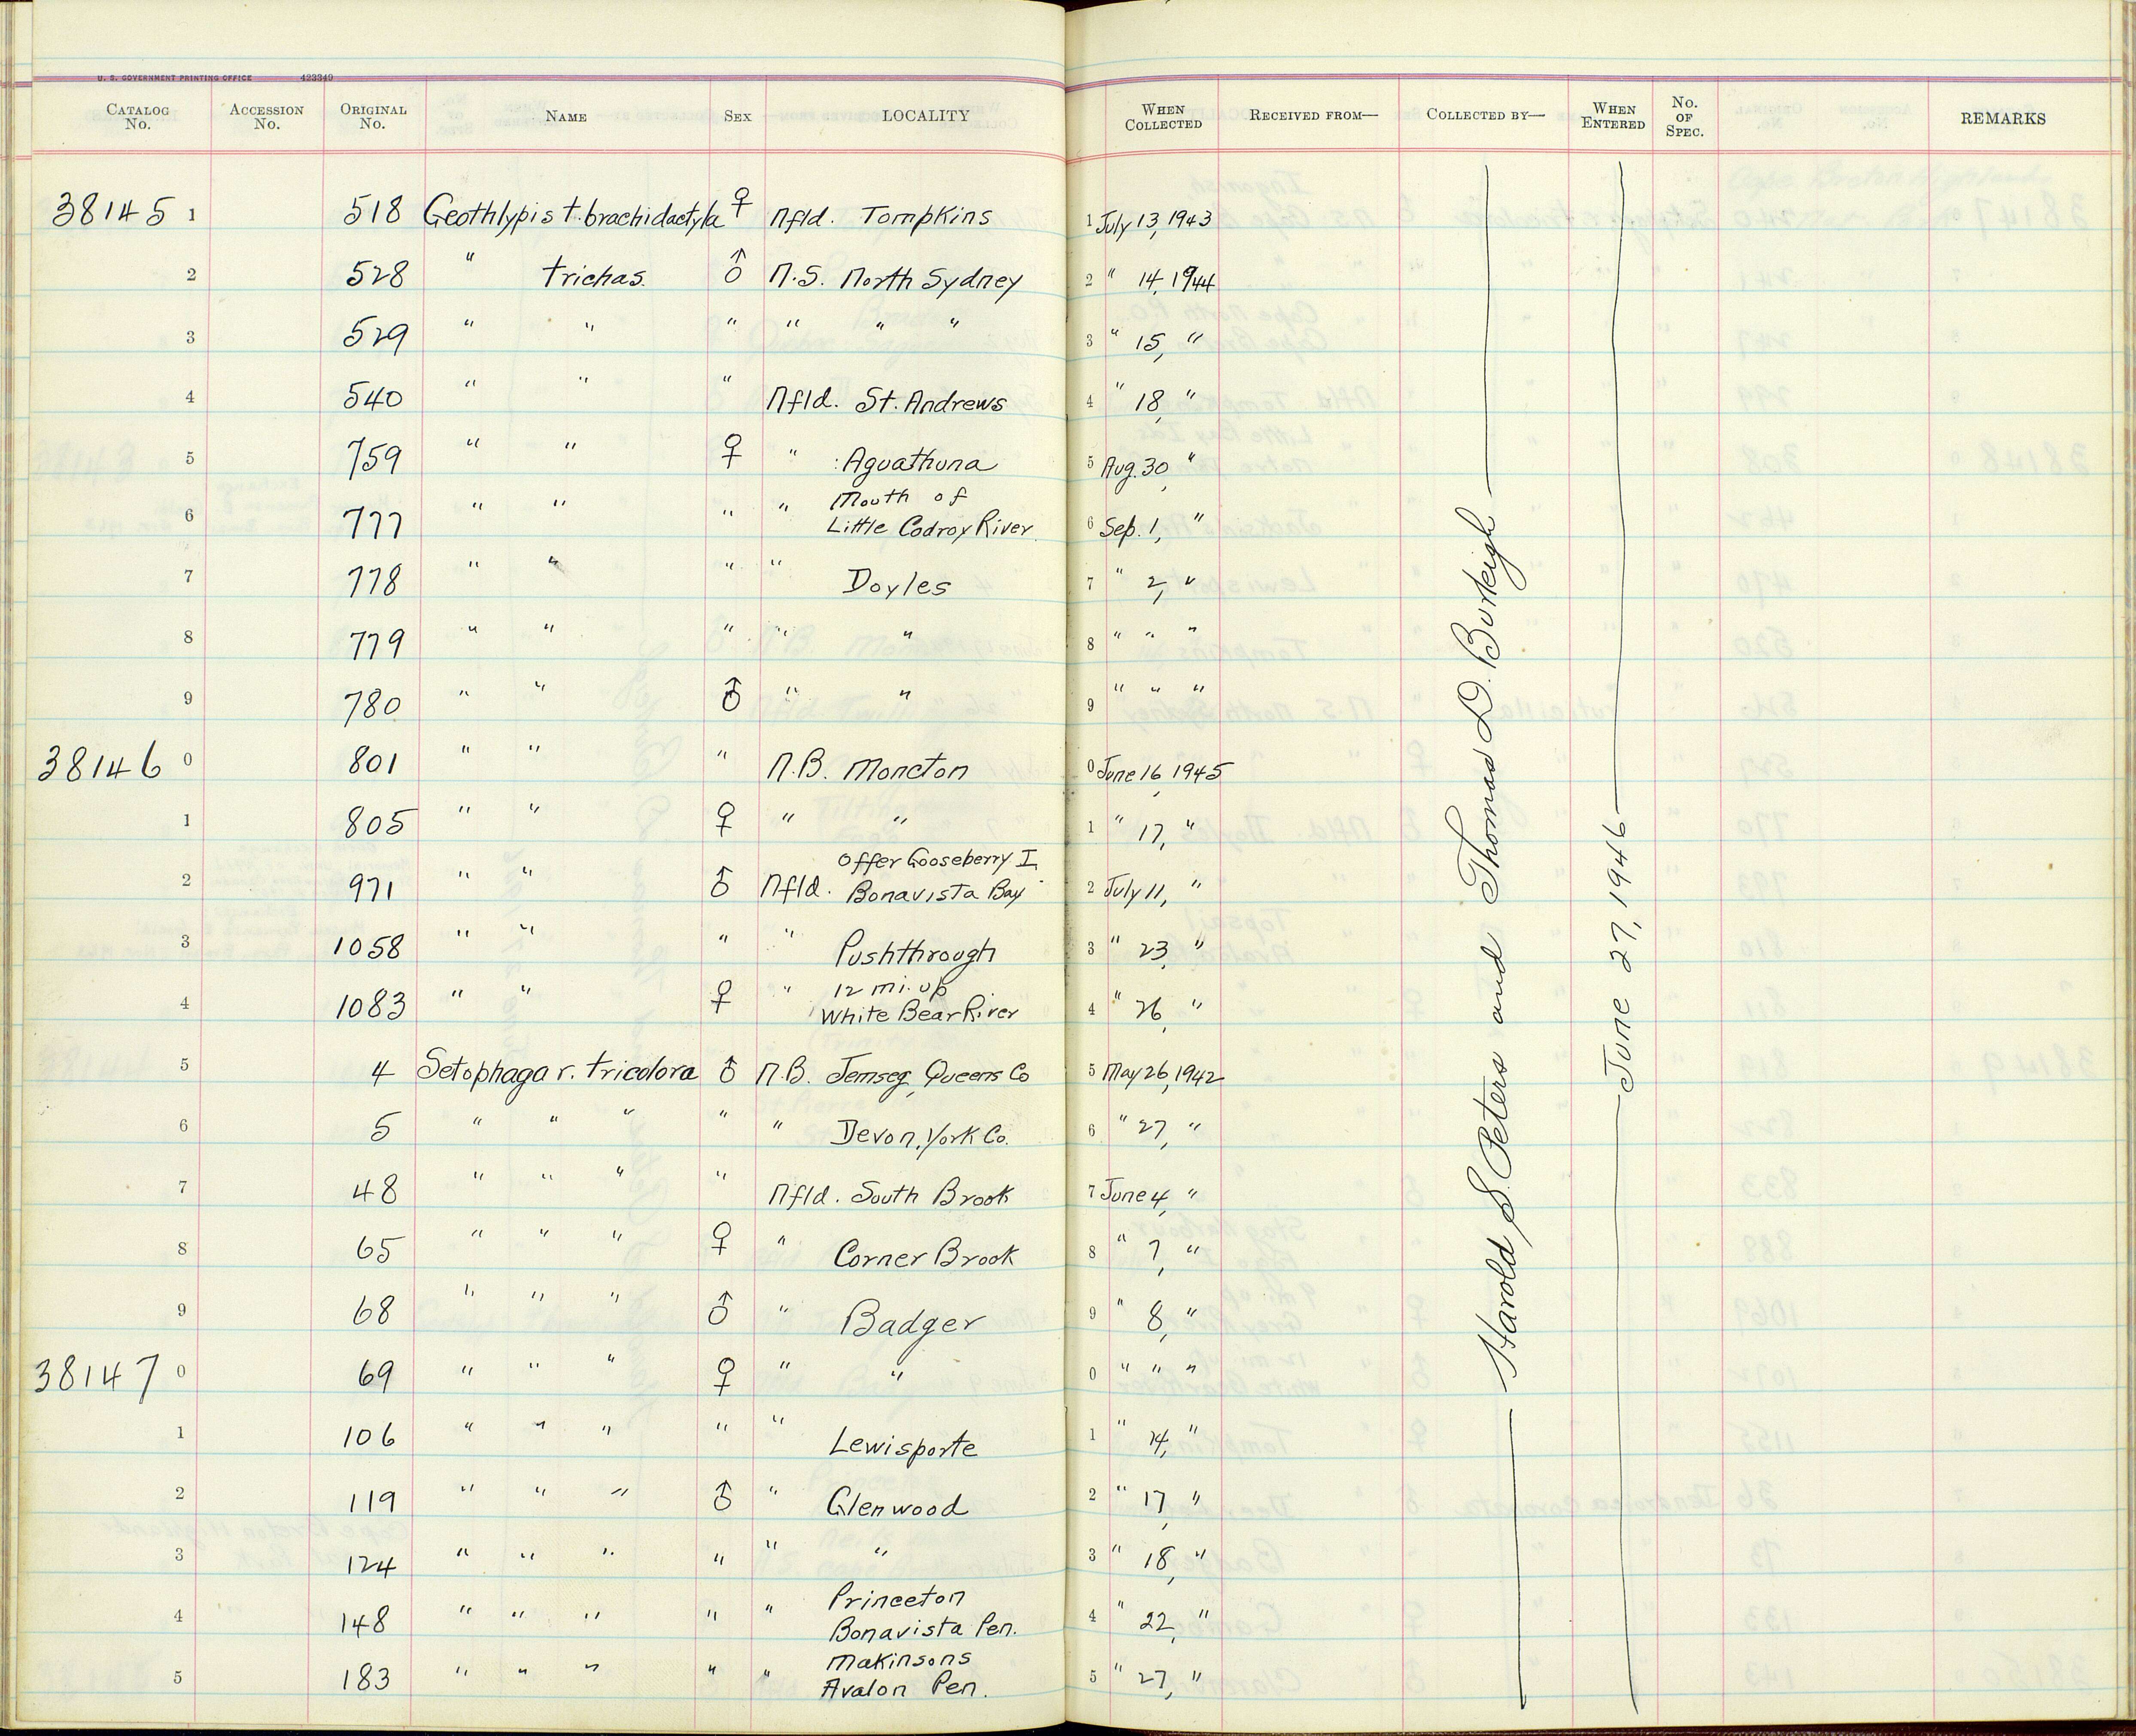 U. S. GOVERNMENT PRINTING OFFICE 423349
CATALOG No. ACCESSION No. ORIGINAL No. NAME SEX LOCALITY WHEN COLLECTED RECEIVED FROM— COLLECTED BY— WHEN ENTERED No. OF SPEC. REMARKS
38145 1 518 Geothlypis t. brachidactyla ♀ Nfld. Tompkins 1 July 13, 1943
2 528 " trichas. ♂ N.S. North Sydney 2 " 14, 1944
3 529 " " " " " " 3 " 15, "
4 540 " " " Nfld. St. Andrews 4 " 18, "
5 759 " " ♀ " Aguathuna 5 Aug. 30, "
Mouth of
6 777 " " " " Little Codroy River 6 Sep. 1, "
7 778 " " " " Doyles 7 " 2, "
8 779 " " " " " 8 " " "
9 780 " " ♂ " " 9 " " "
38146 0 801 " " " N.B. Moncton 0 June 16, 1945
1 805 " " ♀ " " 1 " 17, "
Offer Gooseberry I.
2 971 " " ♂ Nfld. Bonavista Bay 2 July 11, "
3 1058 " " " " Pushthrough 3 " 23, "
12 mi. up
4 1083 " " ♀ " White Bear River 4 " 26, "
5 4 Setophaga r. tricolora ♂ N.B. Jemseg, Queens Co 5 May 26, 1942
6 5 " " " " " Devon, York Co. 6 " 27, "
7 48 " " " " Nfld. South Brook 7 June 4, "
8 65 " " " ♀ " Corner Brook 8 " 7, "
9 68 " " " ♂ " Badger 9 " 8, "
38147 0 69 " " " ♀ " " 0 " " "
1 106 " " " " " Lewisporte 1 " 14, "
2 119 " " " ♂ " Glenwood 2 " 17, "
3 124 " " " " " " 3 " 18, "
Princeton
4 148 " " " " " Bonavista Pen. 4 " 22, "
Makinsons
5 183 " " " " " Avalon Pen. 5 " 27, "
Harold S. Peters and Thomas D. Burleigh
June 27, 1946